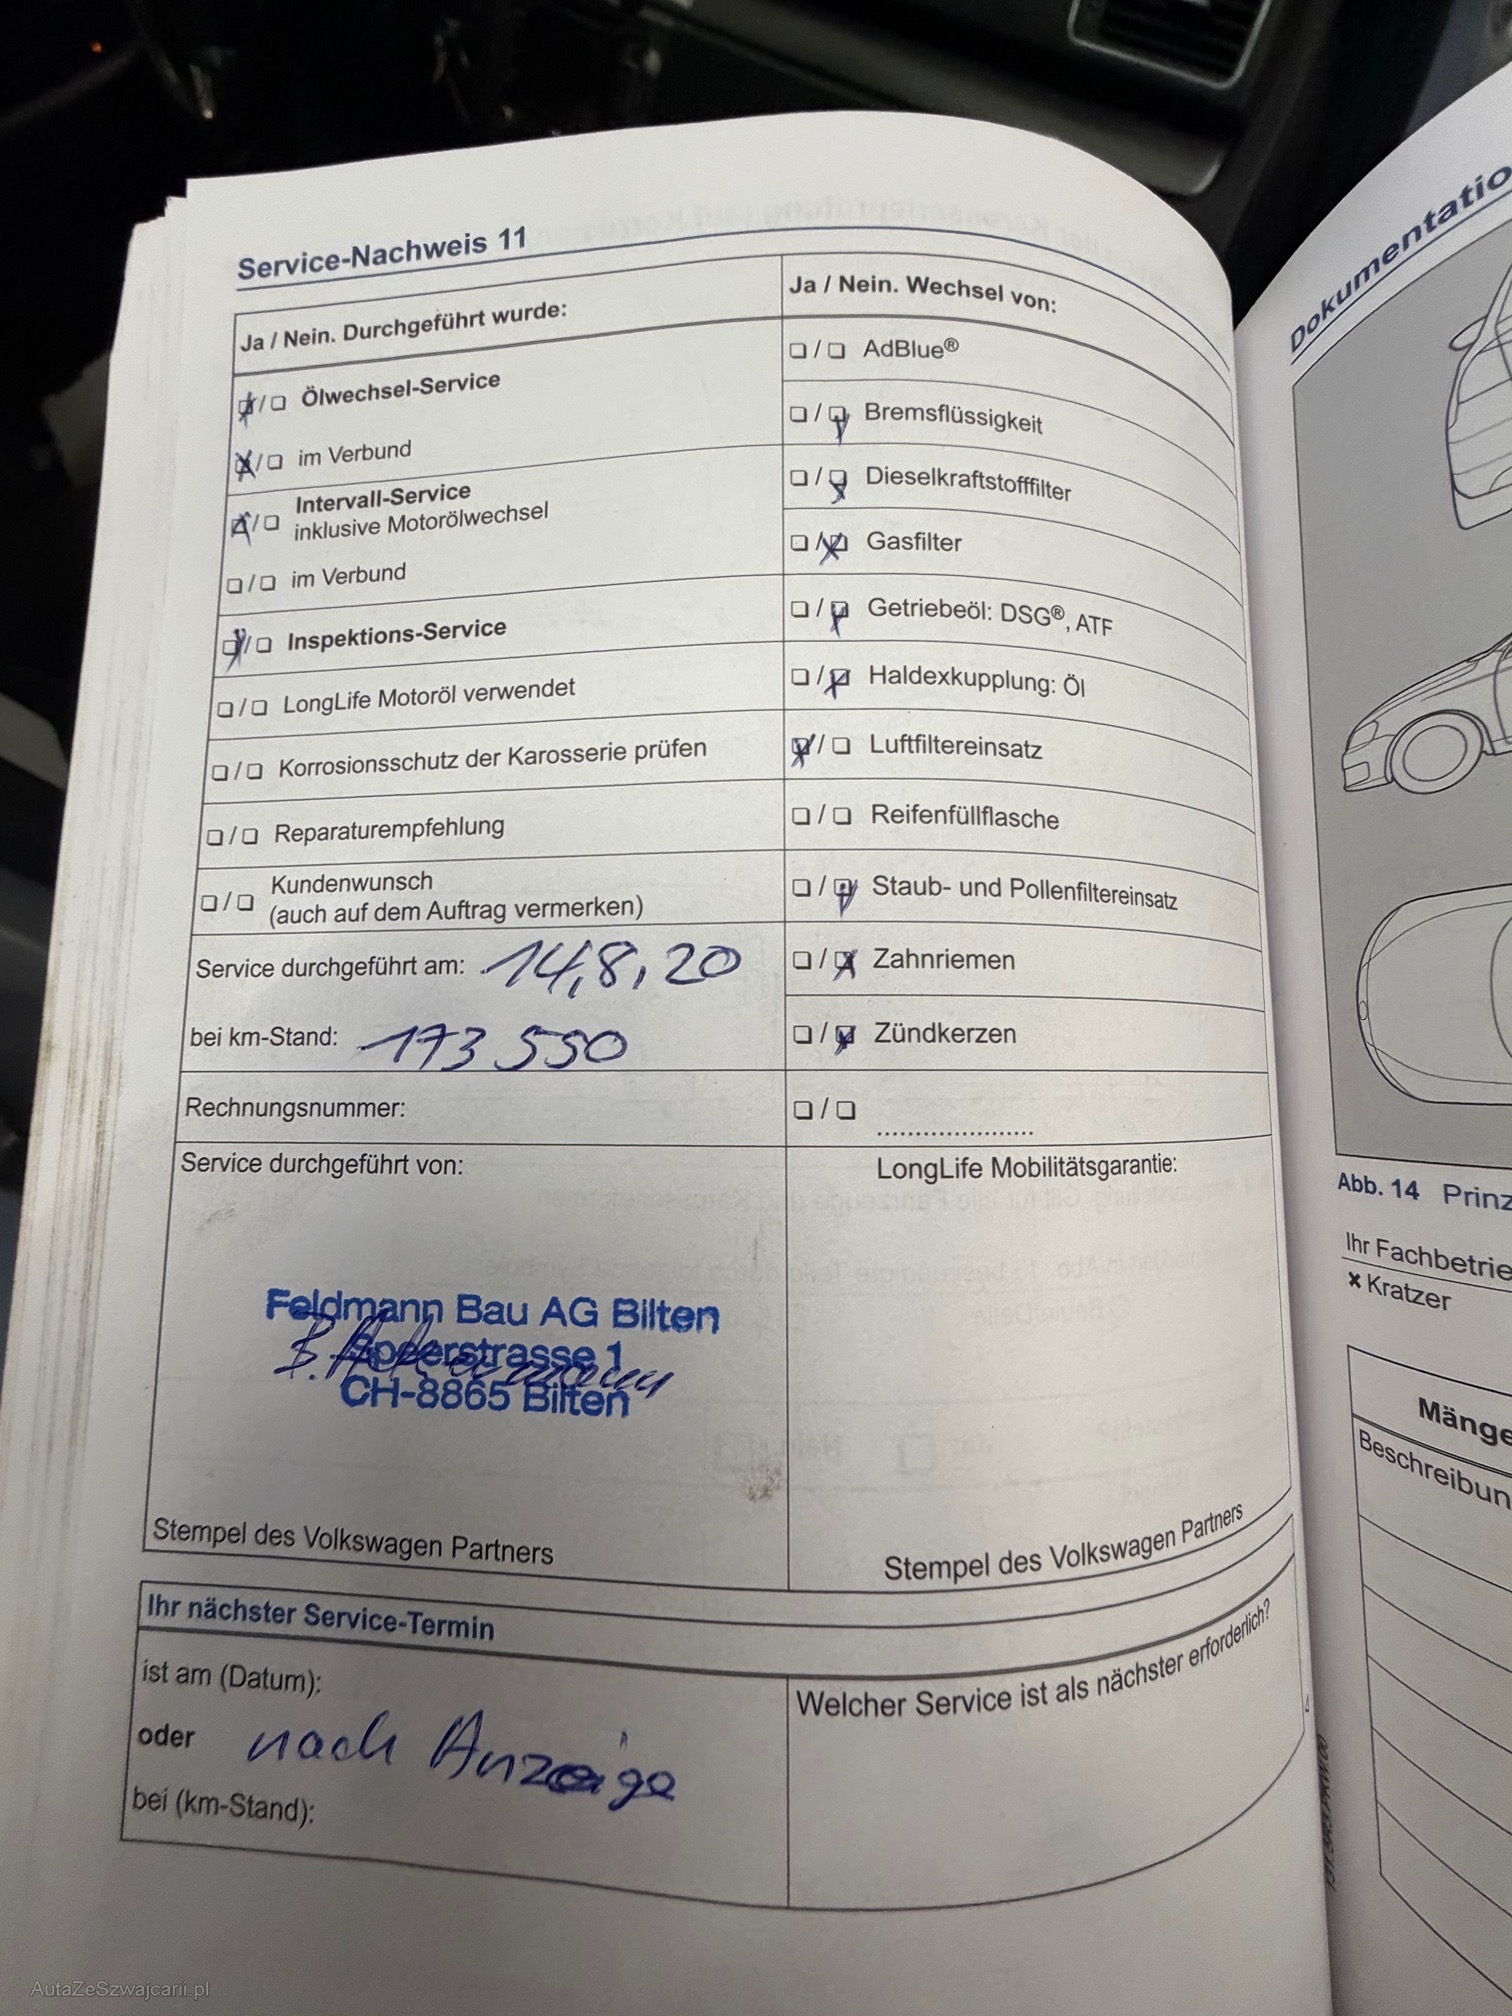 Service-Nachweis 11
Ja / Nein. Durchgeführt wurde:
❑/❑ Ölwechsel-Service
❑/❑ im Verbund
❑/❑ Intervall-Service
inklusive Motorölwechsel
❑/❑ im Verbund
❑/❑ Inspektions-Service
❑/❑ LongLife Motoröl verwendet
❑/❑ Korrosionsschutz der Karosserie prüfen
❑/❑ Reparaturempfehlung
❑/❑ Kundenwunsch
(auch auf dem Auftrag vermerken)
Service durchgeführt am: 14,8,20
bei km-Stand: 173 550
Rechnungsnummer:
Service durchgeführt von:
Feldmann Bau AG Bilten
Speerstrasse 1
CH-8865 Bilten
Stempel des Volkswagen Partners
Ja / Nein. Wechsel von:
❑/❑ AdBlue®
❑/❑ Bremsflüssigkeit
❑/❑ Dieselkraftstofffilter
❑/❑ Gasfilter
❑/❑ Getriebeöl: DSG®, ATF
❑/❑ Haldexkupplung: Öl
❑/❑ Luftfiltereinsatz
❑/❑ Reifenfüllflasche
❑/❑ Staub- und Pollenfiltereinsatz
❑/❑ Zahnriemen
❑/❑ Zündkerzen
❑/❑ .....................
LongLife Mobilitätsgarantie:
Stempel des Volkswagen Partners
Ihr nächster Service-Termin
ist am (Datum):
oder nach Anzeige
bei (km-Stand):
Welcher Service ist als nächster erforderlich?
Dokumentatio
Abb. 14 Prinz
Ihr Fachbetrie
✗ Kratzer
Mänge
Beschreibun
AutaZeSzwajcarii.pl